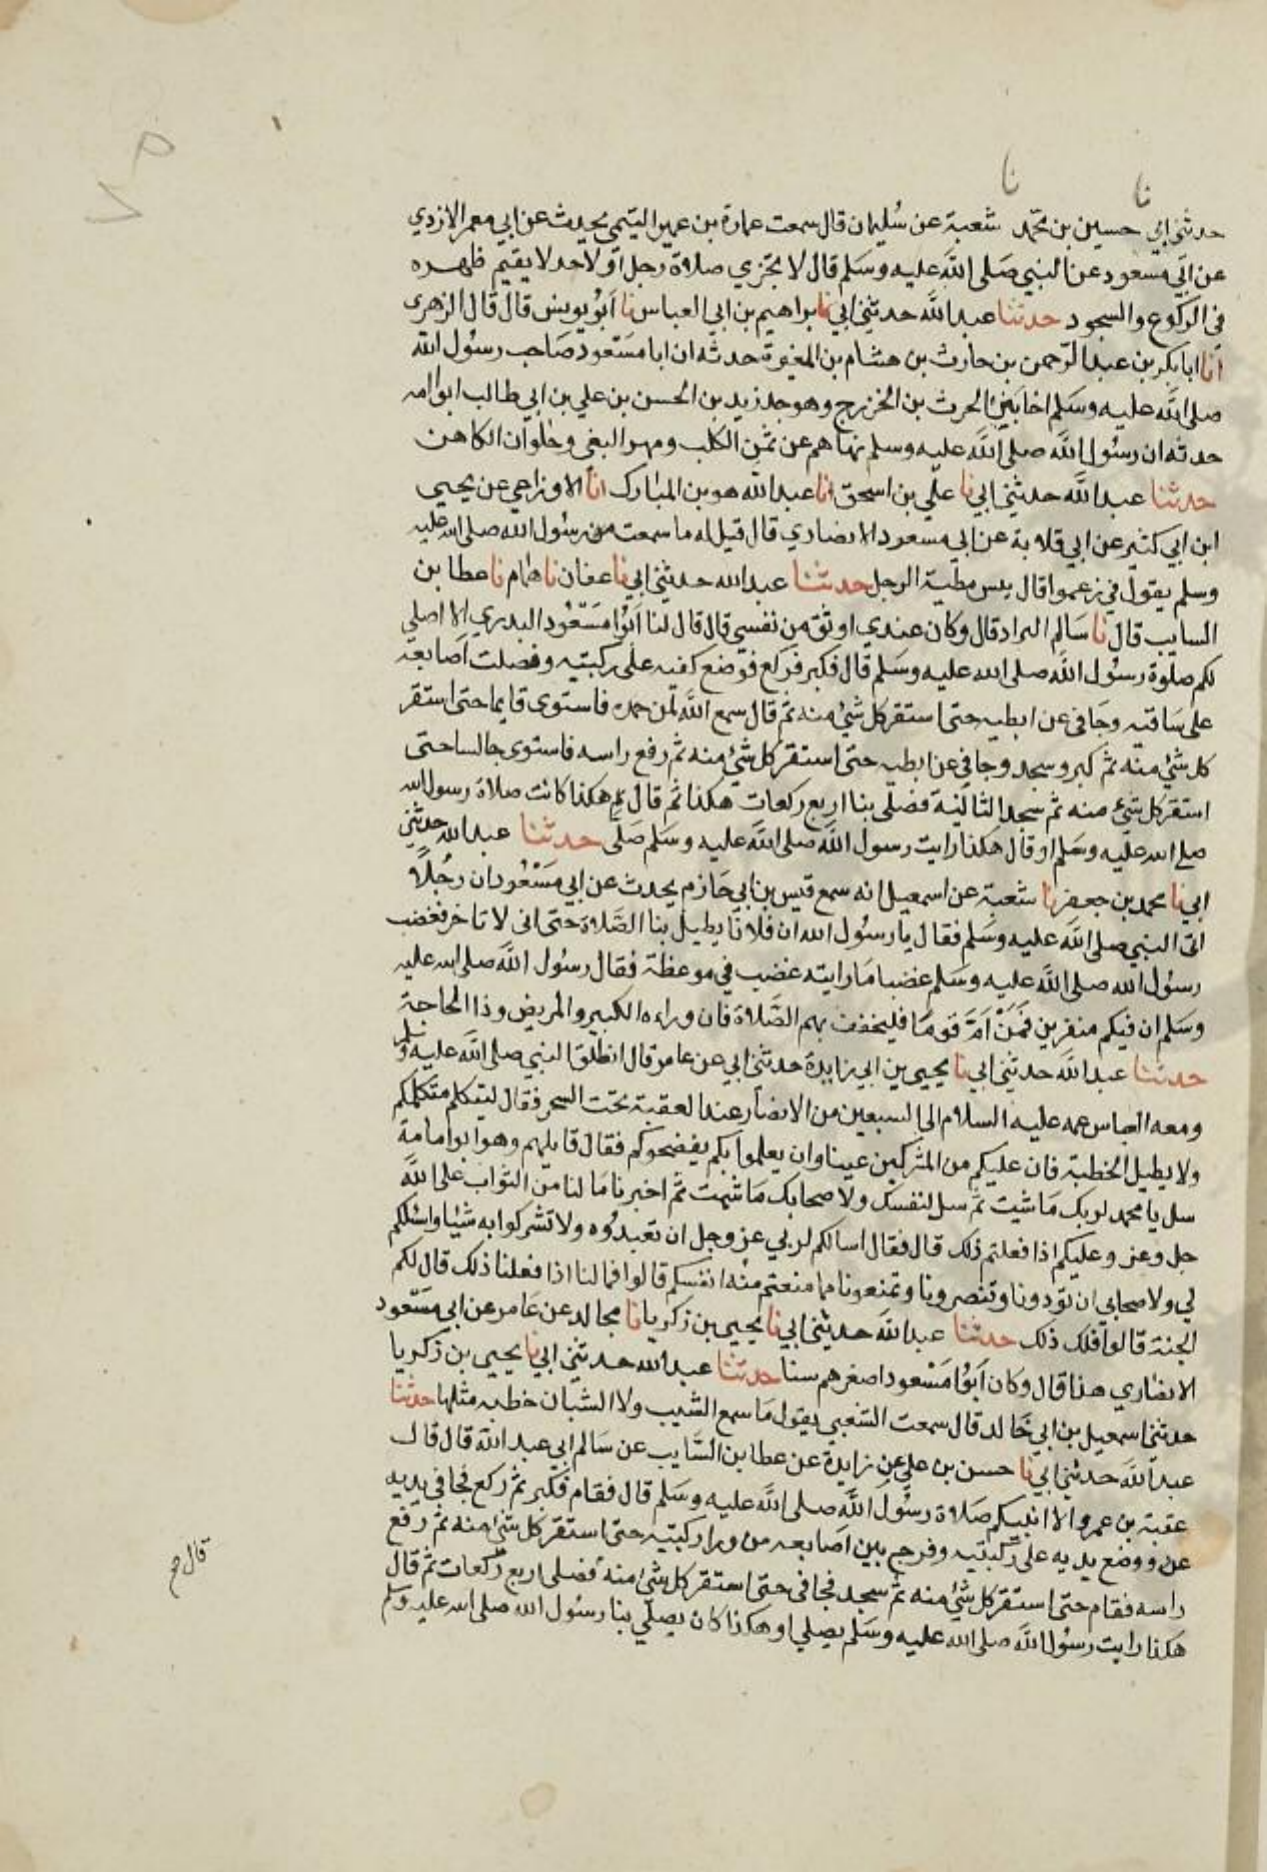 نا نا
حدثني ابي حسين بن محمد شعبة عن سُليمان قال سمعت عمارة بن عمير التيمي يحدث عن ابي معمر الازدي
عن ابي مسعود عن النبي صَلى الله عليه وسَلم قال لا تجزي صلاة رجل او لاحد لا يقيم ظهره
في الركوع والسجود حدثنا عبد الله حدثني ابي نا ابراهيم بن ابي العباس نا ابو يونس قال قال الزهرى
انا ابا بكر بن عبد الرحمن بن حارث بن هشام بن المغيرة حدثه ان ابا مسعود صَاحب رسول الله
صلى الله عليه وسَلم اخا بني الحرث بن الخزرج وهو جد زيد بن الحسن بن علي بن ابي طالب ابو امه
حدثه ان رسُول الله صلى الله عليه وسلم نهاهم عن ثمن الكلب ومهر البغي وحلوان الكاهن
حدثنا عبد الله حدثني ابي نا علي بن اسحق انا عبد الله هو بن المبارك انا الاوزاعي عن يحيى
ابن ابي كثير عن ابي قلابة عن ابي مسعود الانصاري قال قيل له ما سمعت من رسُول الله صلى الله عليه
وسلم يقول في زعموا قال بيس مطية الرجل حدثنا عبد الله حدثني ابي نا عفان نا همام نا عطا بن
السايب قال نا سَالم البراد قال وكان عندي اوثق من نفسي قال قال لنا ابوا مَسْعُود البدري الا اصلي
لكم صلوة رسُول الله صلى الله عليه وسَلم قال فكبر فركع فوضع كفيه على ركبتيه وفصلت اصابعه
على سَاقيه وجَافى عن ابطيه حتى استقر كل شئ منه ثم قال سمع الله لمن حمده فاستوى قايما حتى استقر
كل شئ منه ثم كبر وسجد وجافي عن ابطيه حتى استقر كل شئ منه ثم رفع راسه فاستوى جالسا حتى
استقر كل شئ منه ثم سجد الثانية فصلى بنا اربع ركعات هكذا ثم قال هكذا كانت صلاة رسول الله
صلى الله عليه وسَلم او قال هكذا رايت رسول الله صلى الله عليه وسَلم صَلى حدثنا عبد الله حدثني
ابي نا محمد بن جعفر نا شعبة عن اسمعيل انه سمع قيس بن ابي حَازم يحدث عن ابي مَسْعُود ان رجُلًا
اتى النبي صلى الله عليه وسَلم فقال يا رسُول الله ان فلانا يطيل بنا الصَّلاة حتى انى لاتاخر فغضب
رسُول الله صلى الله عليه وسَلم غضبا مَا رايته غضب في موعظة فقال رسُول الله صلى الله عليه
وسَلم ان فيكم منفرين فمَنْ اَمَّ قومًا فليخفف بهم الصَّلاة فان وراءه الكبير والمريض وذا الحاجة
حدثنا عبد الله حدثني ابي نا يحيى بن ابي زايدة حدثني ابي عن عامر قال انطلق النبي صلى الله عليه وسلم
ومعه العباس عمه عليه السلام الى السبعين من الانصَار عند العقبة تحت السجر فقال ليتكلم متكلمكم
ولا يطيل الخطبة فان عليكم من المشركين عينا وان يعلموا بكم يفضحوكم فقال قايلهم وهو ابو امامة
سل يا محمد لربك مَا شيت ثم سل لنفسك ولاصحابك مَا شيت ثم اخبرنا مَا لنا من الثواب على الله
جل وعز وعليكم اذا فعلتم ذلك قال فقال اسالكم لربي عز وجل ان تعبدُوه ولا تشركوا به شئيا واسلكم
لي ولاصحابي ان تودونا وتنصرونا وتمنعونا مما منعتم منه انفسكم قالوا فما لنا اذا فعلنا ذلك قال لكم
الجنة قالوا فلك ذلك حدثنا عبد الله حدثني ابي نا يحيى بن زكريا نا مجالد عن عَامر عن ابي مسَعود
الانصَاري هذا قال وكان ابَوُا مَسْعود اصغرهم سنا حدثنا عبد الله حدثني ابي نا يحيى بن زكريا
حدثنا اسمعيل بن ابي خَالد قال سمعت الشعبي يقول مَا سمع الشيب ولا الشبان خطبه مثلها حدثنا
عبد الله حدثني ابي نا حسن بن علي عن زايدة عن عطا بن السَّايب عن سَالم ابي عبد الله قال قال
عقبة بن عمرو الا انبيكم صَلاة رسُول الله صلى الله عليه وسَلم قال فقام فكبر ثم ركع فجافى يديه
عن ووضع يديه على ركبتيه وفرج بين اصَابعه من ورا ركبتيه حتى استقر كل شئ منه ثم رفع
راسه فقام حتى استقر كل شئ منه ثم سجد فجافى حتى استقر كل شئ منه فصلى اربع ركعات ثم قال
هكذا رايت رسُول الله صلى الله عليه وسَلم يصلي او هكذا كان يصلي بنا رسُول الله صلى الله عليه وسلم
قال صح